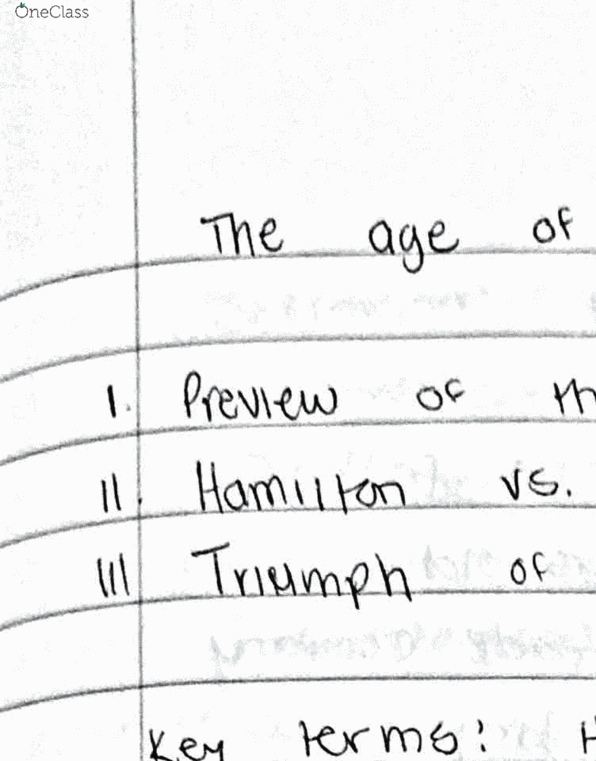 OneClass
The age of
I. Preview of th
II. Hamilton vs.
III Triumph of
Key terms: H